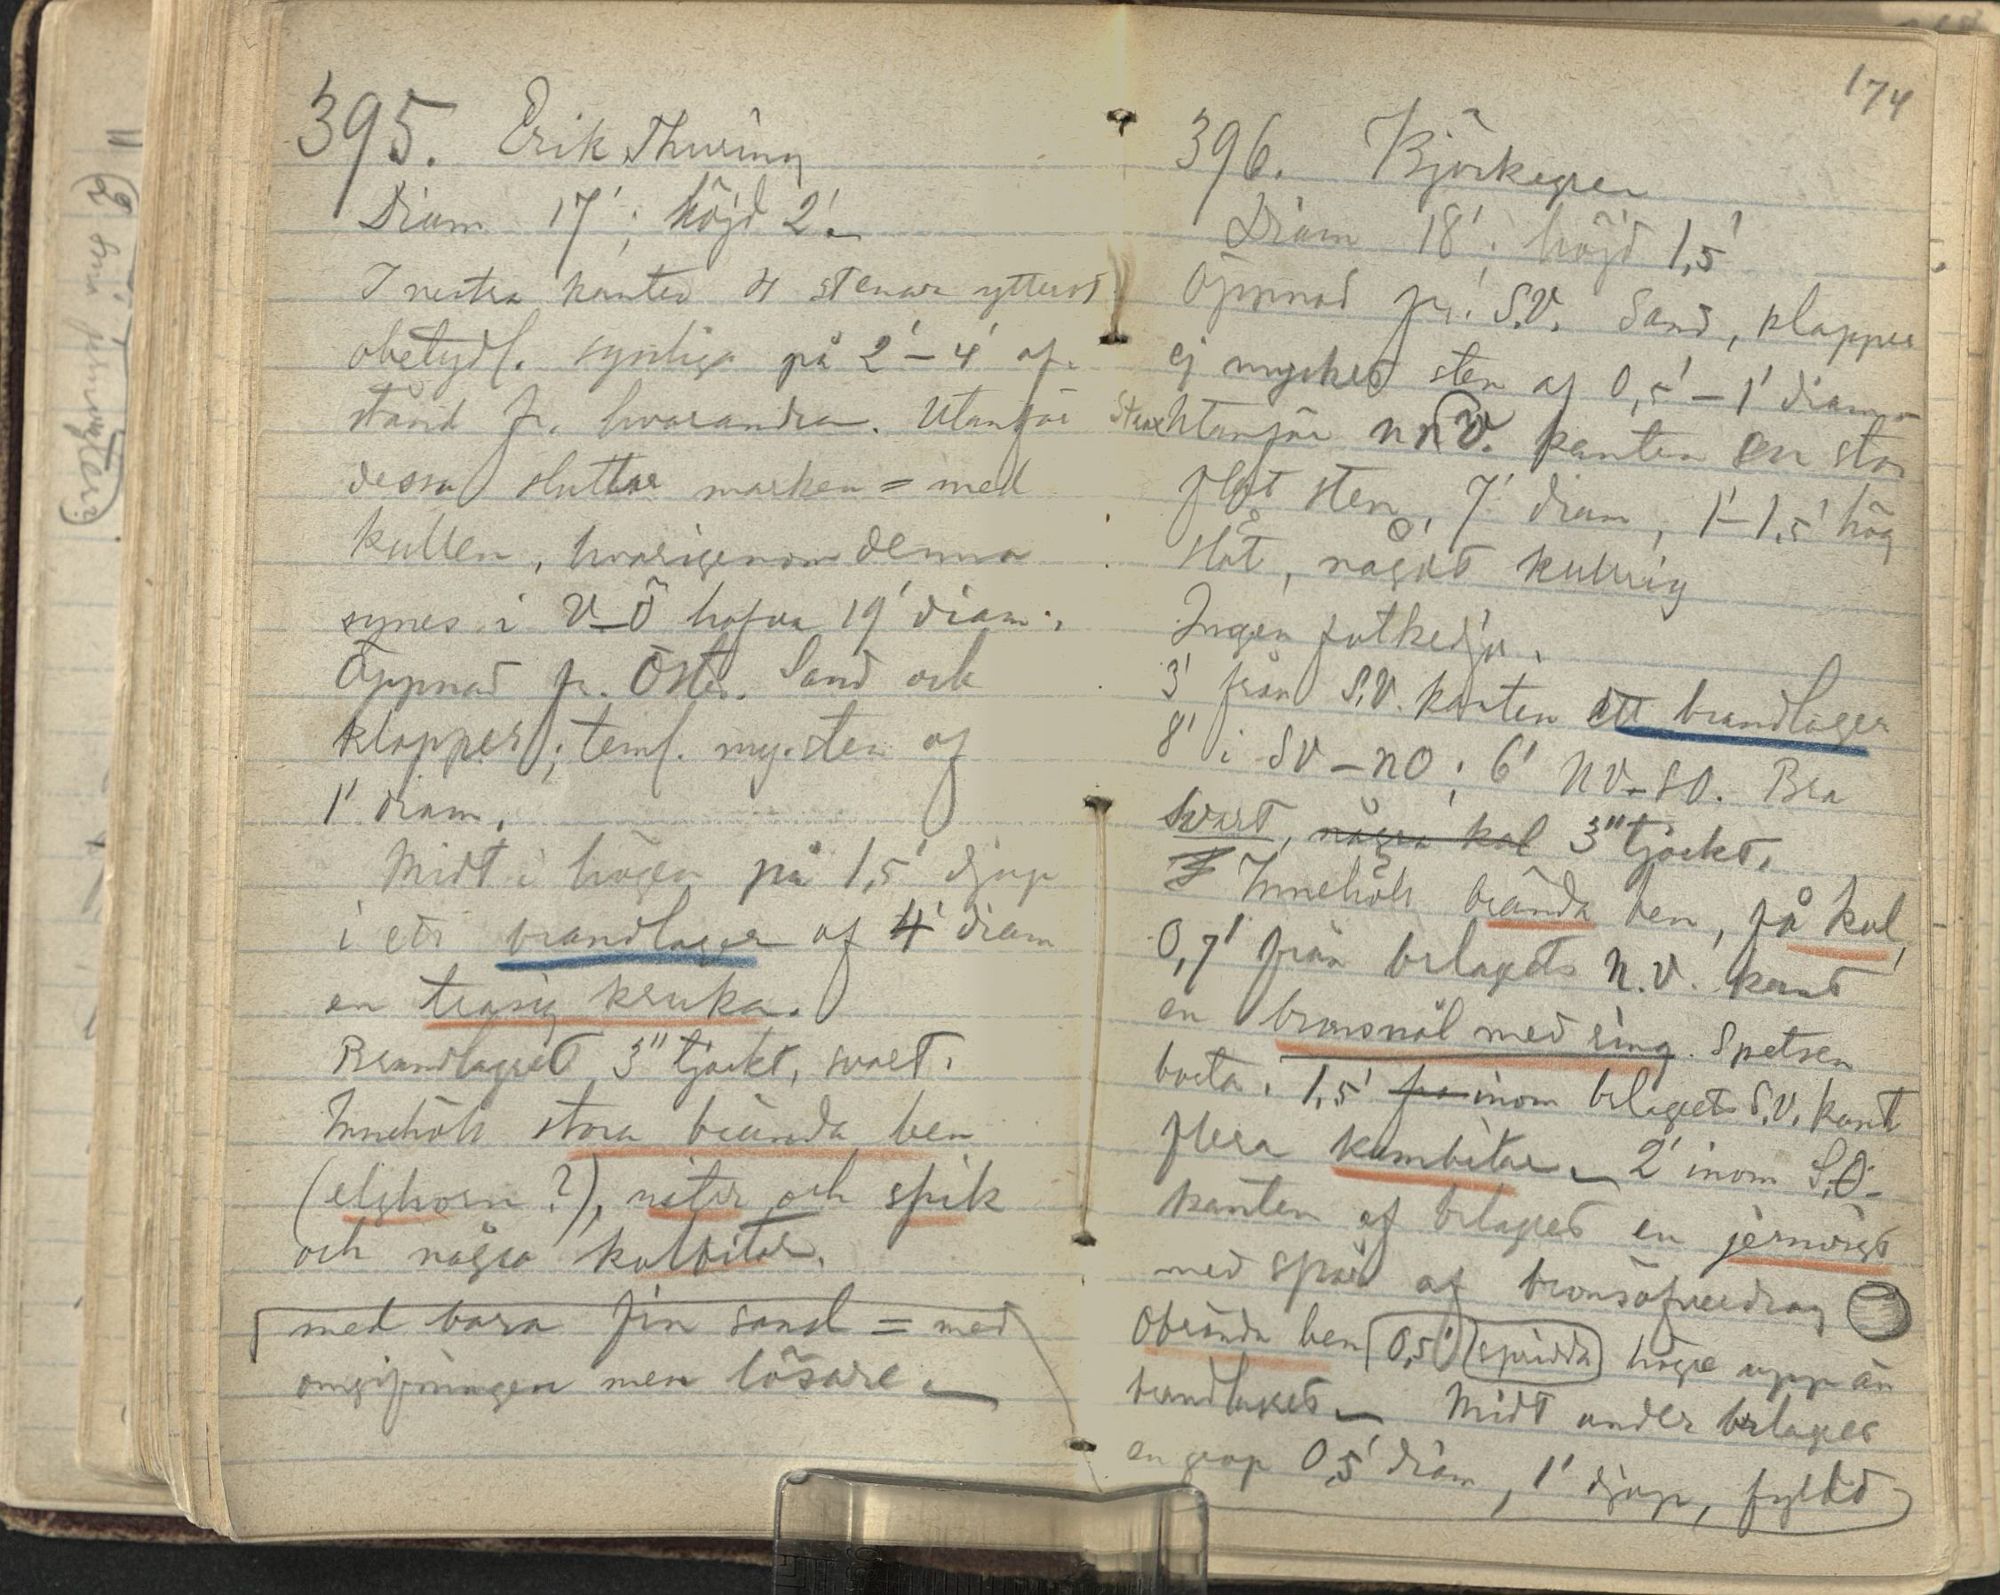 395. Erik Thuring
Diam 17'; höjd 2'.
I vestra kanten 4 stenar ytterst
obetydl. synliga på 2'–4' af-
stånd fr. hvarandra. Utanför
dessa sluttar marken = med
kullen, hvarigenom denna
synes i V–Ö hafva 19' diam.
Öppnad fr. Öster. Sand och
klapper; teml. my. sten af
1' diam.
Midt i högen på 1,5' djup
i ett brandlager af 4' diam
en trasig kruka.
Brandlagret 3" tjockt, svart.
Innehöll stora brända ben
(elghorn?), nitar och spik
och några kolbitar.
med bara fin sand = med
omgifningen men lösare.
174
396. Björkegren
Diam 18'; höjd 1,5'
Öppnad fr. S.V. Sand, klapper
ej mycket sten af 0,5'–1' diam.
Strax utanför NNV. kanten en stor
flat sten, 7' diam, 1'–1,5' hög
slät, något kullrig
Ingen fotkedja.
3' från S.V. kanten ett brandlager
8' i SV–NO; 6' NV–SO. Bra
svart, några kol 3" tjockt.
Innehöll brända ben, få kol,
0,7' från brlagets N.V. kant
en bronsnål med ring. Spetsen
borta. 1,5' fra inom brlagets S.V. kant
flera kambitar. 2' inom S.O-
kanten af brlagret en järnvigt
med spår af bronsöfverdrag
Obrända ben 0,5' (spridda) högre upp än
brandlagret. Midt under brlagret
en grop 0,5' diam, 1' djup, fylld